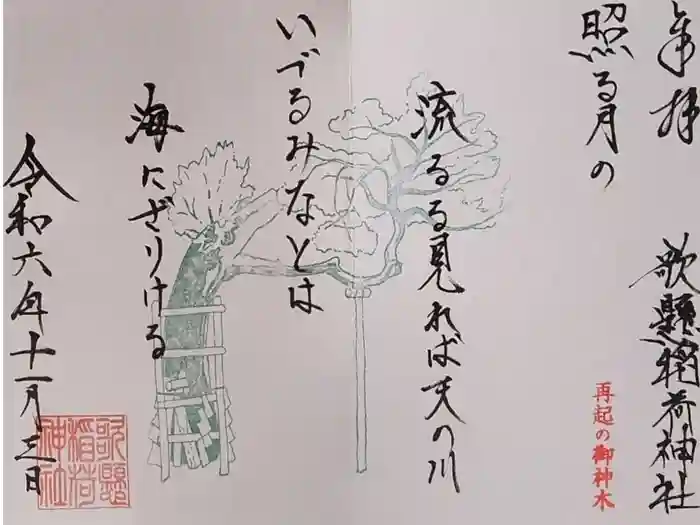 奉拝
歌懸稲荷神社
再起の御神木
照る月の
流るる見れば天の川
いづるみなとは
海にざりける
令和六年十一月三日
歌懸
稲荷
神社